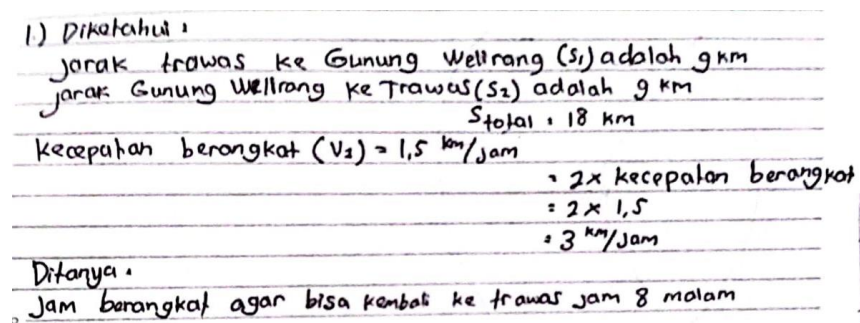 1.) Diketahui :
Jarak trawas ke Gunung Wellrang (S₁) adalah 9 km
jarak Gunung Wellrang ke Trawas (S₂) adalah 9 km
Stotal : 18 km
Kecepatan berangkat (V₁) = 1,5 km/jam
= 2x kecepatan berangkat
= 2 x 1,5
= 3 km/Jam
Ditanya :
Jam berangkat agar bisa kembali ke trawas jam 8 malam